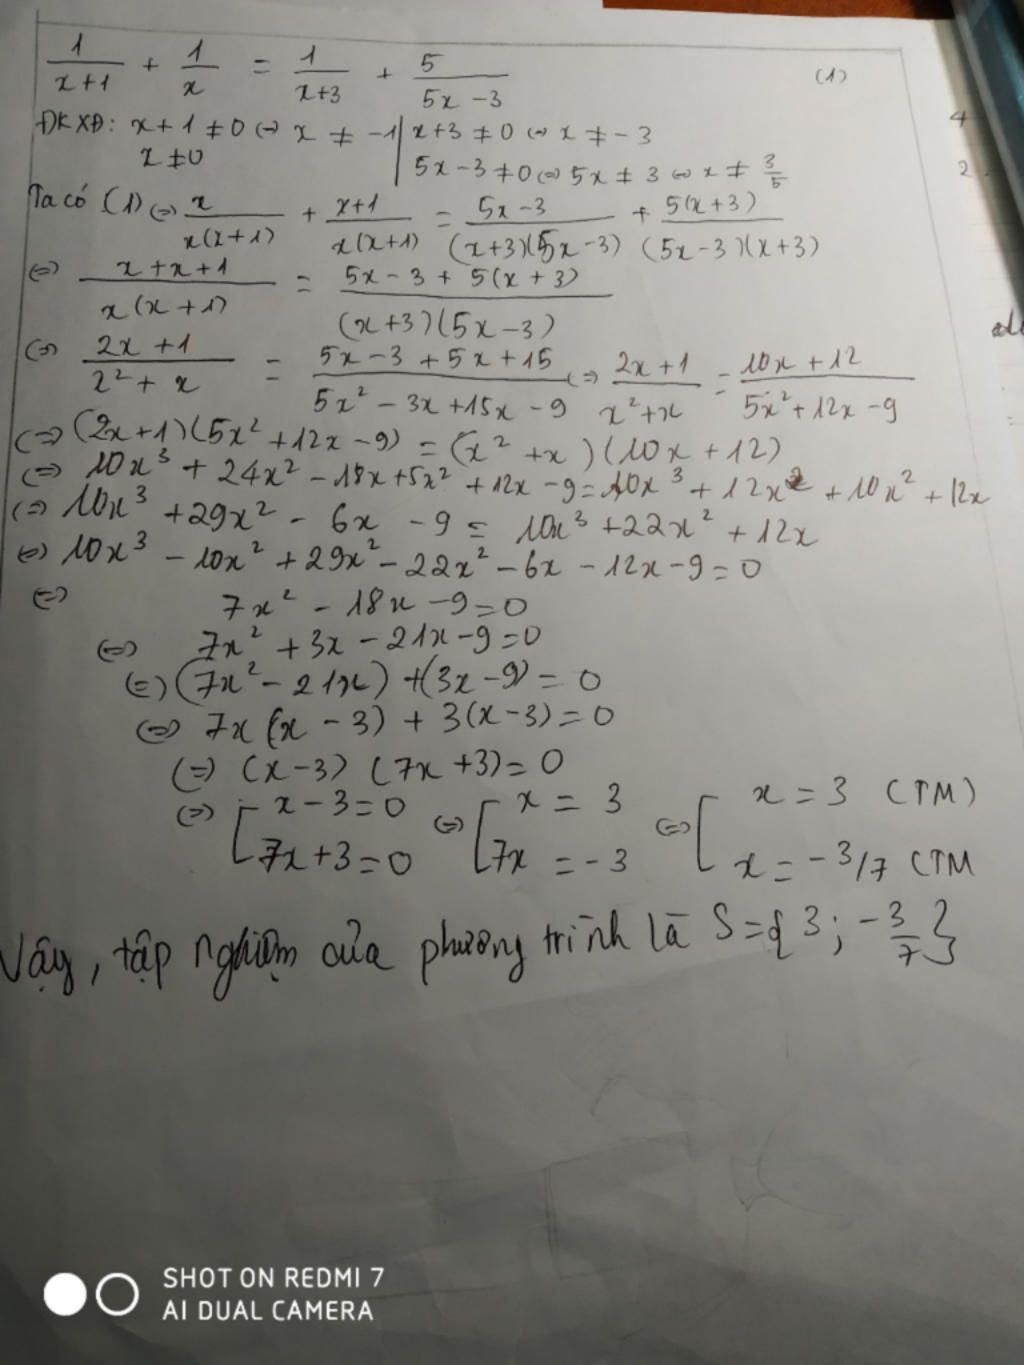 1/(x+1) + 1/x = 1/(x+3) + 5/(5x-3) (1)
ĐKXĐ: x+1 ≠ 0 ⇔ x ≠ -1 | x+3 ≠ 0 ⇔ x ≠ -3
x ≠ 0 | 5x-3 ≠ 0 ⇔ 5x ≠ 3 ⇔ x ≠ 3/5
Ta có (1) ⇔ x/(x(x+1)) + (x+1)/(x(x+1)) = (5x-3)/((x+3)(5x-3)) + 5(x+3)/((5x-3)(x+3))
⇔ (x+x+1)/(x(x+1)) = (5x-3+5(x+3))/((x+3)(5x-3))
⇔ (2x+1)/(x²+x) = (5x-3+5x+15)/(5x²-3x+15x-9) ⇔ (2x+1)/(x²+x) = (10x+12)/(5x²+12x-9)
⇔ (2x+1)(5x²+12x-9) = (x²+x)(10x+12)
⇔ 10x³+24x²-18x+5x²+12x-9 = 10x³+12x²+10x²+12x
⇔ 10x³+29x²-6x-9 = 10x³+22x²+12x
⇔ 10x³-10x²+29x²-22x²-6x-12x-9=0
⇔ 7x²-18x-9=0
⇔ 7x²+3x-21x-9=0
⇔ (7x²-21x)+(3x-9)=0
⇔ 7x(x-3)+3(x-3)=0
⇔ (x-3)(7x+3)=0
⇔ [ x-3=0 ⇔ [ x=3 ⇔ [ x=3 (TM)
7x+3=0 7x=-3 x=-3/7 (TM
Vậy, tập nghiệm của phương trình là S={3; -3/7}
SHOT ON REDMI 7
AI DUAL CAMERA